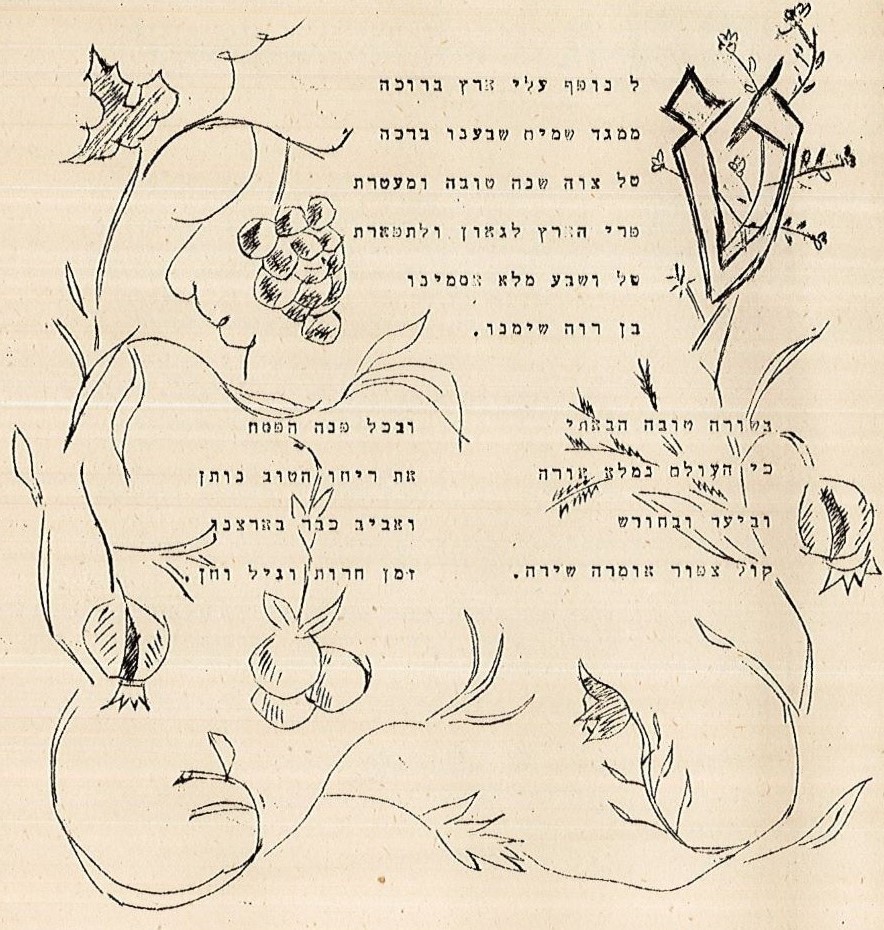 טל נופף עלי ארץ ברוכה
ממגד שמים שבענו ברכה
טל צוה שנה טובה ומעטרת
פרי הארץ לגאון ולתפארת
טל ושבע מלא אסמינו
גן רוה שימנו.
בשורה טובה הבאתי
כי העולם נמלא אורה
וביער ובחורש
קול צפור אומרה שירה.
ובכל פנה הפסח
את ריחו הטוב נותן
ואביב כבר בארצנו
זמן חרות וגיל וחן.